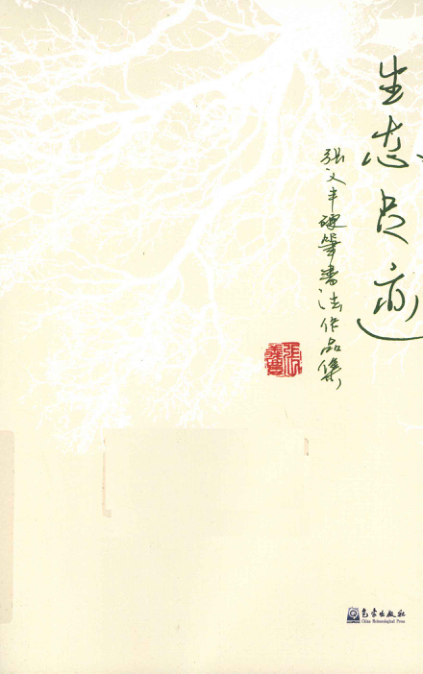 生态足迹
张义丰硬筆書法作品集
气象出版社
China Meteorological Press